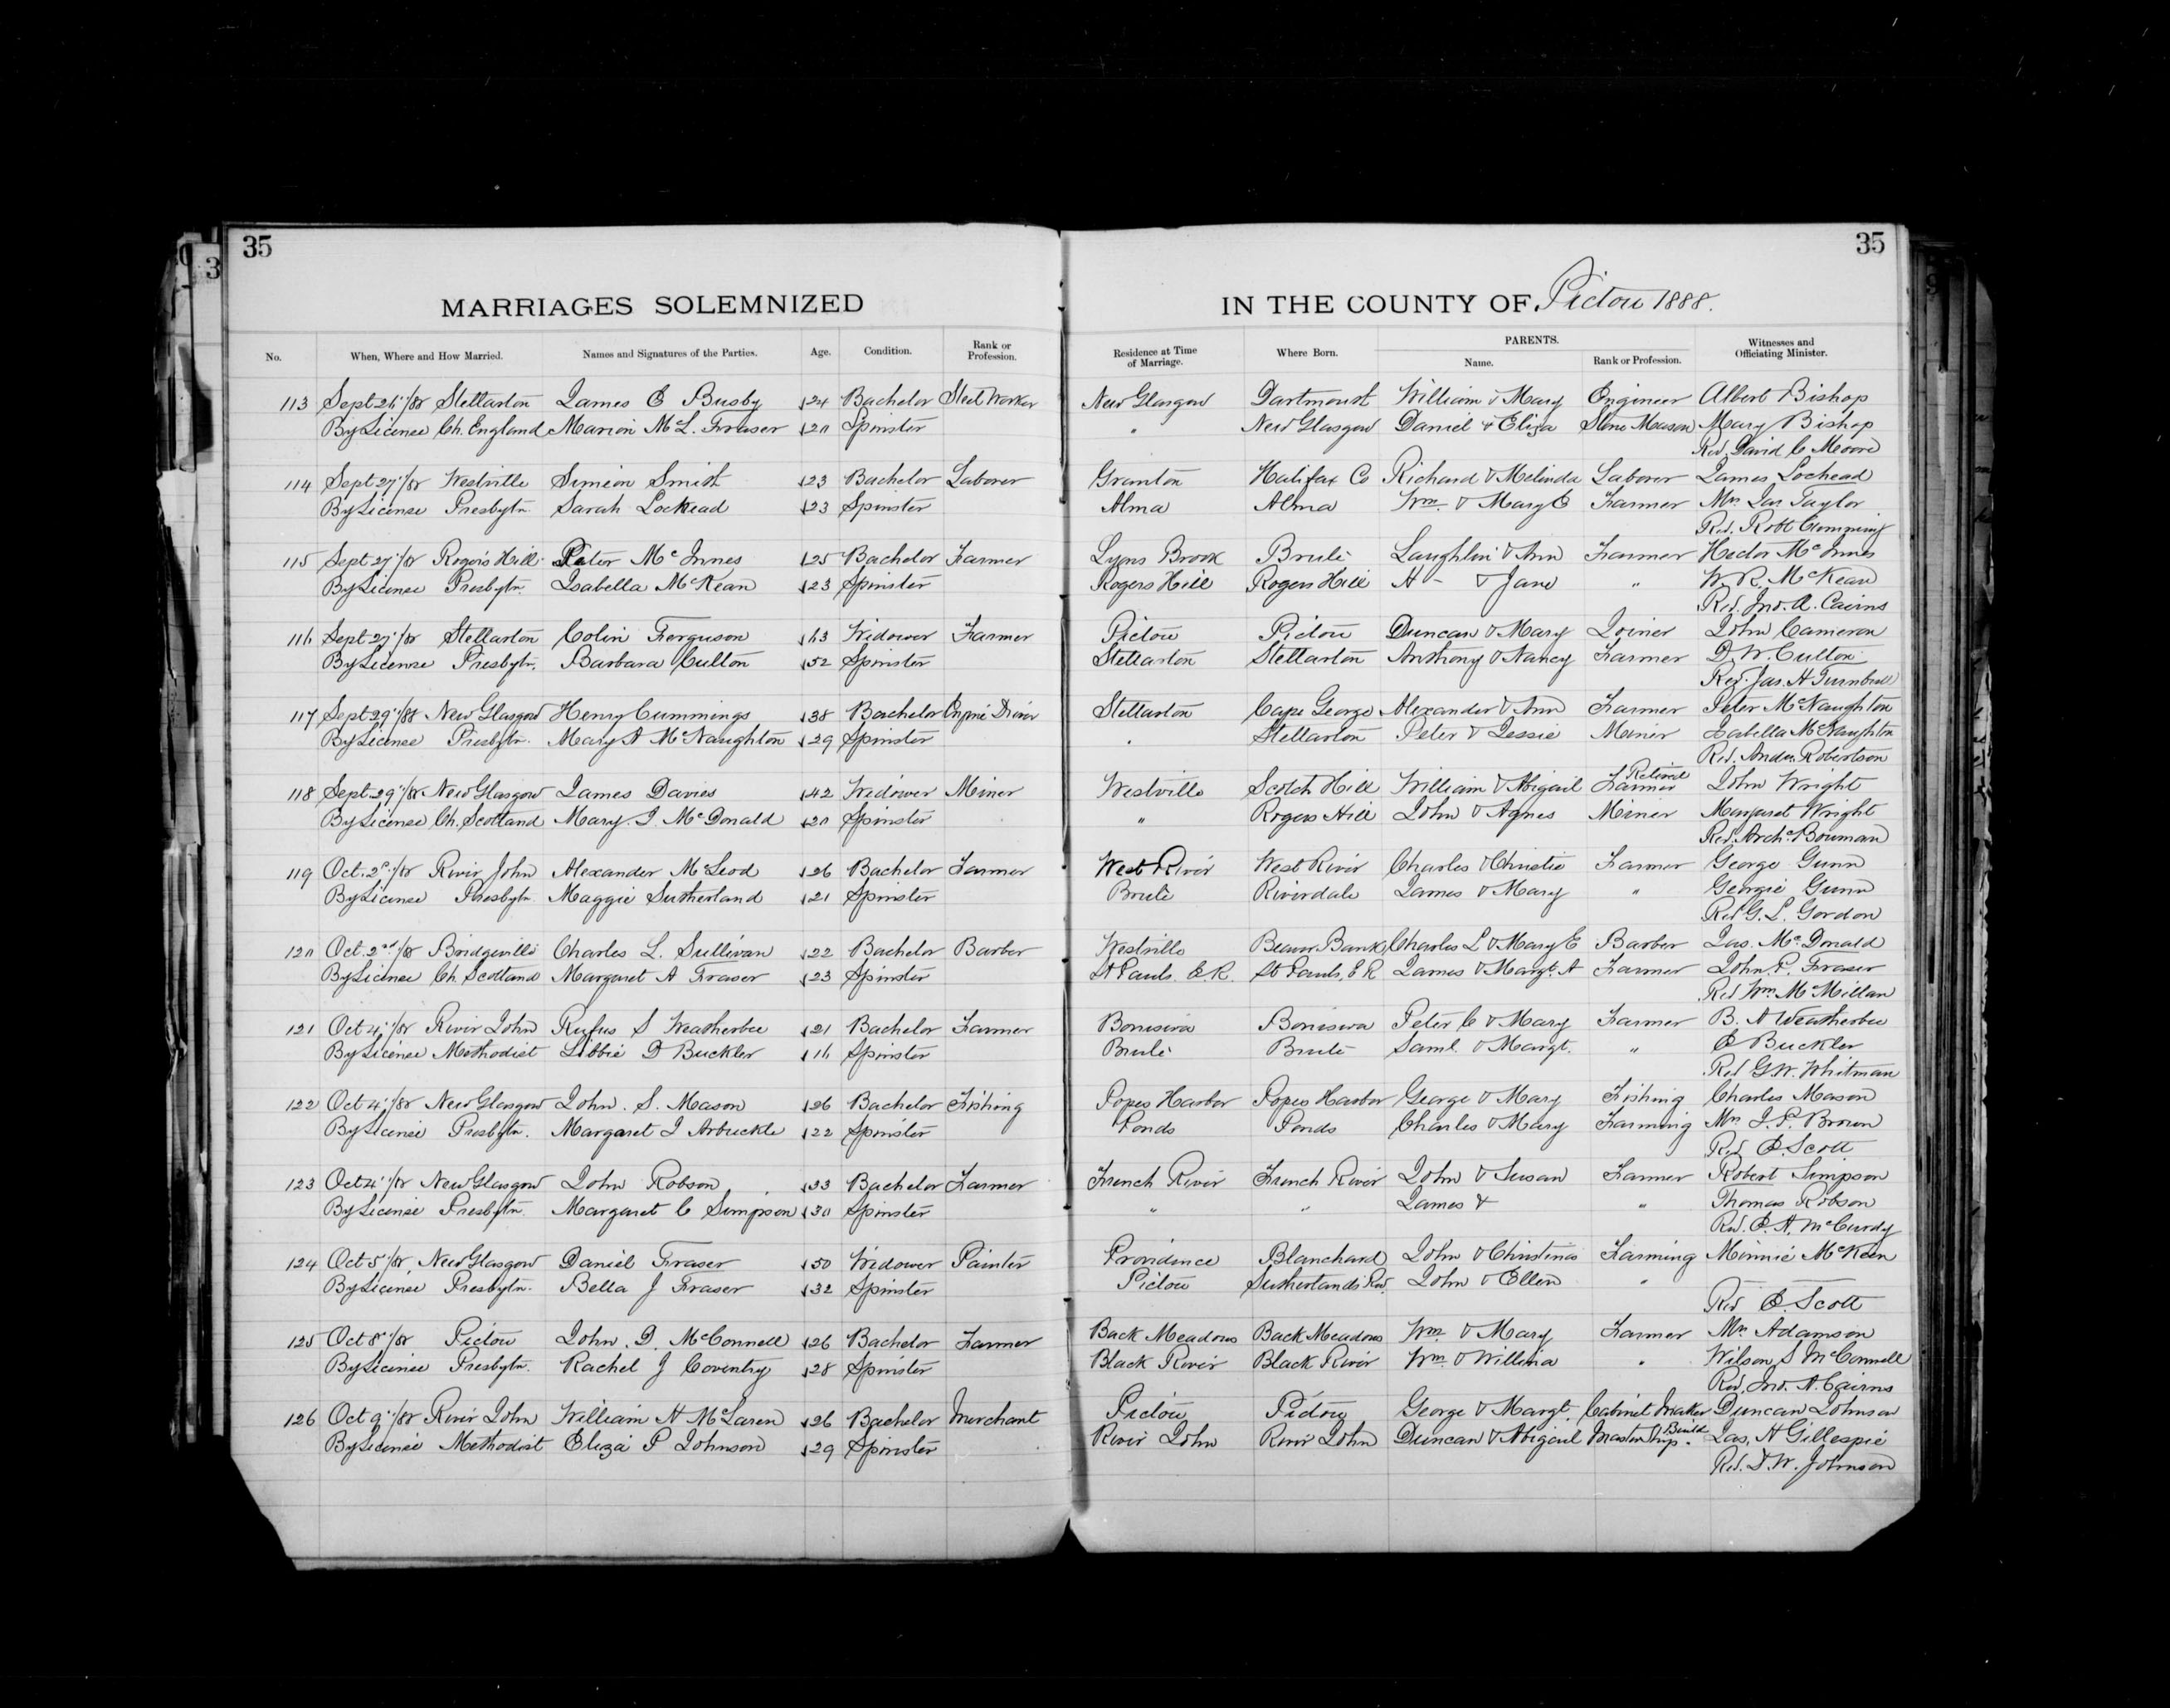 35
35
MARRIAGES SOLEMNIZED IN THE COUNTY OF Pictou 1888.
No. When, Where and How Married. Names and Signatures of the Parties. Age. Condition. Rank or Profession. Residence at Time of Marriage. Where Born. PARENTS. Name. Rank or Profession. Witnesses and Officiating Minister.
113 Sept 26/88 Stellarton James E Busby 24 Bachelor Steel Worker New Glasgow Dartmouth William & Mary Engineer Albert Bishop
By License Ch. England Marion McL. Fraser 20 Spinster " New Glasgow Daniel & Eliza Stone Mason Mary Bishop
Rev. David C Moore
114 Sept 27/88 Westville Simeon Smith 23 Bachelor Laborer Granton Halifax Co Richard & Melinda Laborer James Lochead
By License Presbytn Sarah Lockead 23 Spinster Alma Alma Wm. & Mary E Farmer Mrs Jas Taylor
Rev. Robt Cumming
115 Sept 27/88 Rogers Hill Peter McInnes 25 Bachelor Farmer Lyons Brook Brule Laughlin & Ann Farmer Hector McInnes
By License Presbytn. Isabella McKean 23 Spinster Rogers Hill Rogers Hill H - & Jane " W. R. McKean
Rev. Jno. A. Cairns
116 Sept 27/88 Stellarton Colin Ferguson 63 Widower Farmer Pictou Pictou Duncan & Mary Joiner John Cameron
By License Presbytn. Barbara Culton 52 Spinster Stellarton Stellarton Anthony & Nancy Farmer D. W. Culton
Rev. Jas. A Turnbull
117 Sept 29/88 New Glasgow Henry Cummings 38 Bachelor Engine Driver Stellarton Cape George Alexander & Ann Farmer Peter McNaughton
By License Presbytn. Mary A McNaughton 29 Spinster " Stellarton Peter & Jessie Miner Isabella McNaughton
Rev. Andw Robertson
118 Sept 29/88 New Glasgow James Davies 42 Widower Miner Westville Scotch Hill William & Abigail Retired Farmer John Wright
By License Ch. Scotland Mary J. McDonald 20 Spinster " Rogers Hill John & Agnes Miner Margaret Wright
Rev. Archd Bowman
119 Oct. 2d/88 River John Alexander McLeod 26 Bachelor Farmer West River West River Charles & Christie Farmer George Gunn
By License Presbytn Maggie Sutherland 21 Spinster Brule Riverdale James & Mary " Georgie Gunn
Rev G. L. Gordon
120 Oct. 2nd/88 Bridgeville Charles L. Sullivan 22 Bachelor Barber Westville Beaver Bank Charles L & Mary E Barber Jas. McDonald
By License Ch. Scotland Margaret A Fraser 23 Spinster St Pauls. E. R. St Pauls. E R James & Margt. A Farmer John P. Fraser
Rev Wm. McMillan
121 Oct 4/88 River John Rufus S Weatherbee 21 Bachelor Farmer Peter C & Mary Farmer B. A Weatherbee
By License Methodist Libbie D Buckler 16 Spinster Brule Brule Saml. & Margt. " E Buckler
Rev G. W. Whitman
122 Oct 4/88 New Glasgow John. S. Mason 26 Bachelor Fishing Popes Harbor Popes Harbor George & Mary Fishing Charles Mason
By License Presbytn. Margaret J Arbuckle 22 Spinster Ponds Ponds Charles & Mary Farming Mrs J. P. Brown
Rev E. Scott
123 Oct 4/88 New Glasgow John Robson 33 Bachelor Farmer French River French River John & Susan Farmer Robert Simpson
By License Presbytn. Margaret C Simpson 30 Spinster " " James & " Thomas Robson
Rev. E. A. McCurdy
124 Oct 5/88 New Glasgow Daniel Fraser 50 Widower Painter Providence Blanchard John & Christina Farming Minnie McKeen
By License Presbytn. Bella J Fraser 32 Spinster Pictou Sutherlands Riv. John & Ellen "
Rev E. Scott
125 Oct 8/88 Pictou John. D. McConnell 26 Bachelor Farmer Back Meadows Back Meadows Wm. & Mary Farmer Mrs Adamson
By License Presbytn. Rachel J Coventry 28 Spinster Black River Black River Wm. & Willina " Wilson S McConnell
Rev. Jno. A. Cairns
126 Oct 9/88 River John William H McLaren 26 Bachelor Merchant Pictou Pictou George & Margt. Cabinet Maker Duncan Johnson
By License Methodist Eliza P Johnson 29 Spinster River John River John Duncan & Abigail Master Ship Build. Jas. A Gillespie
Rev. D. W. Johnson